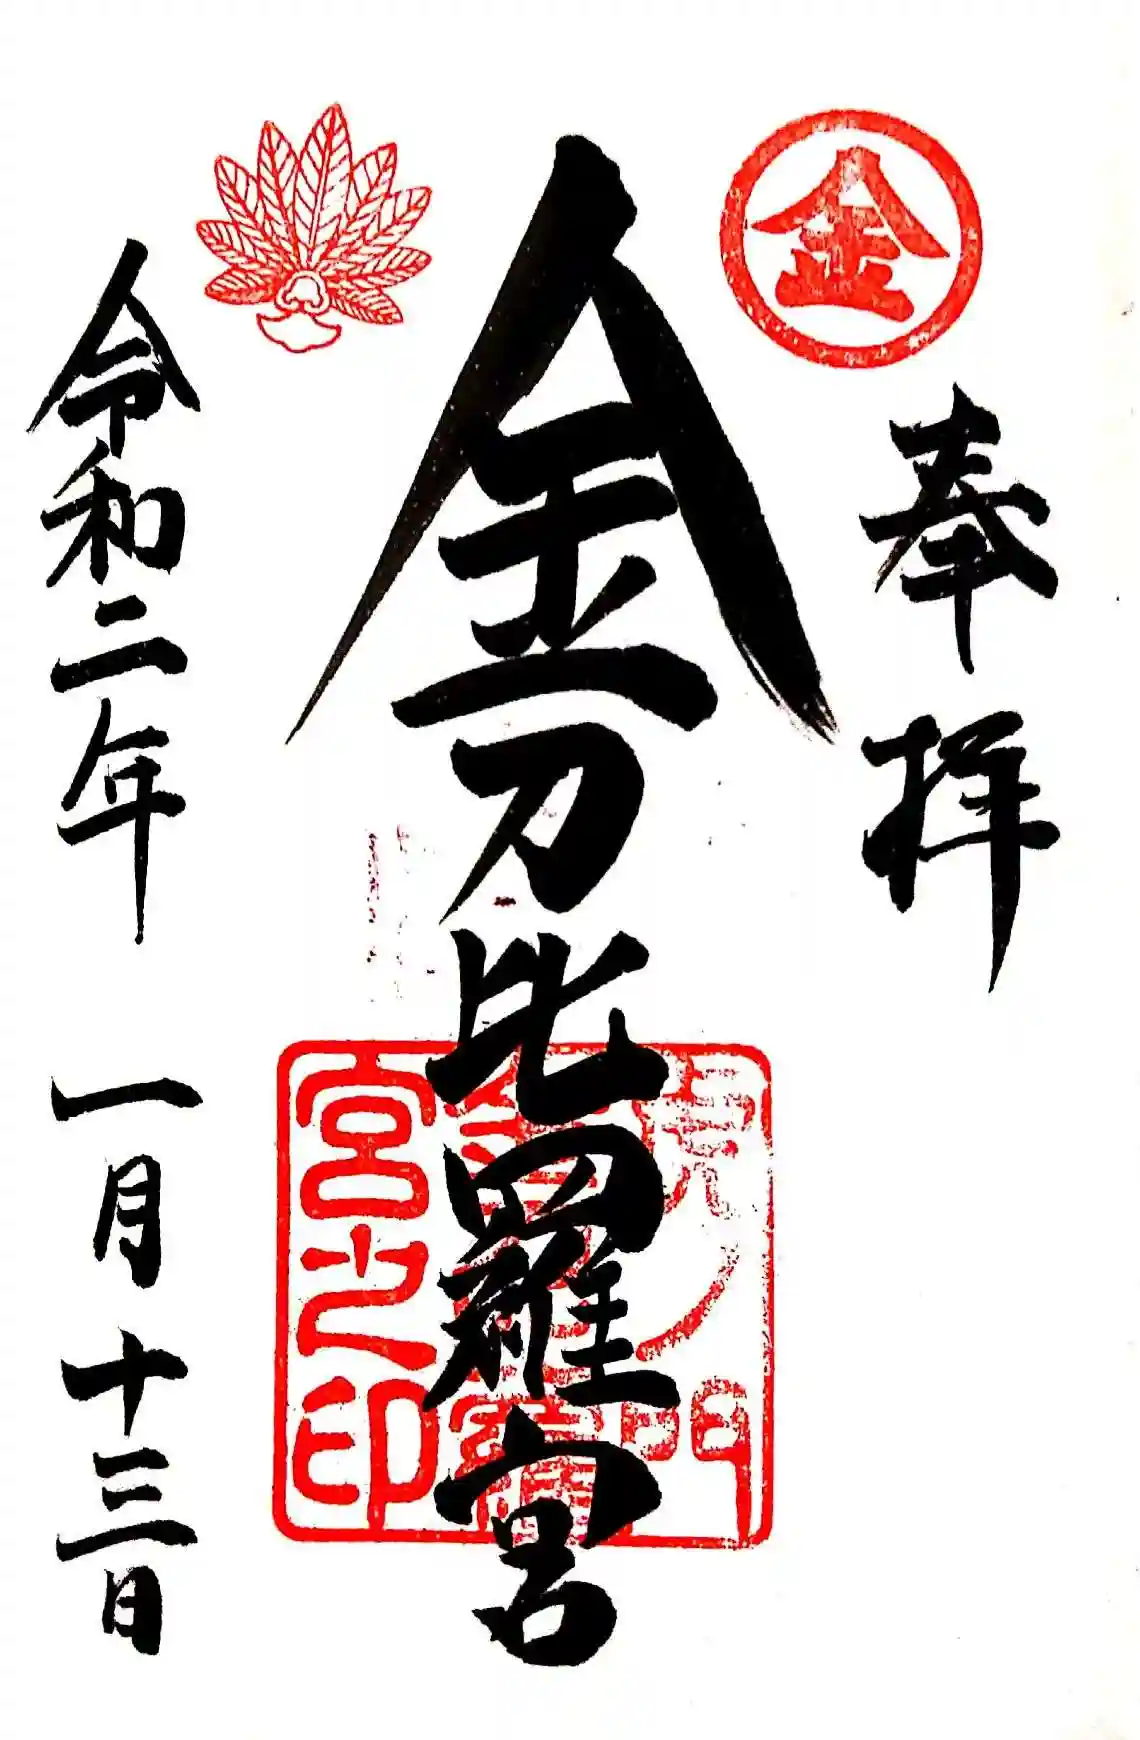 金
奉拝
金刀比羅宮
虎ノ門
宮之印
令和二年 一月十三日